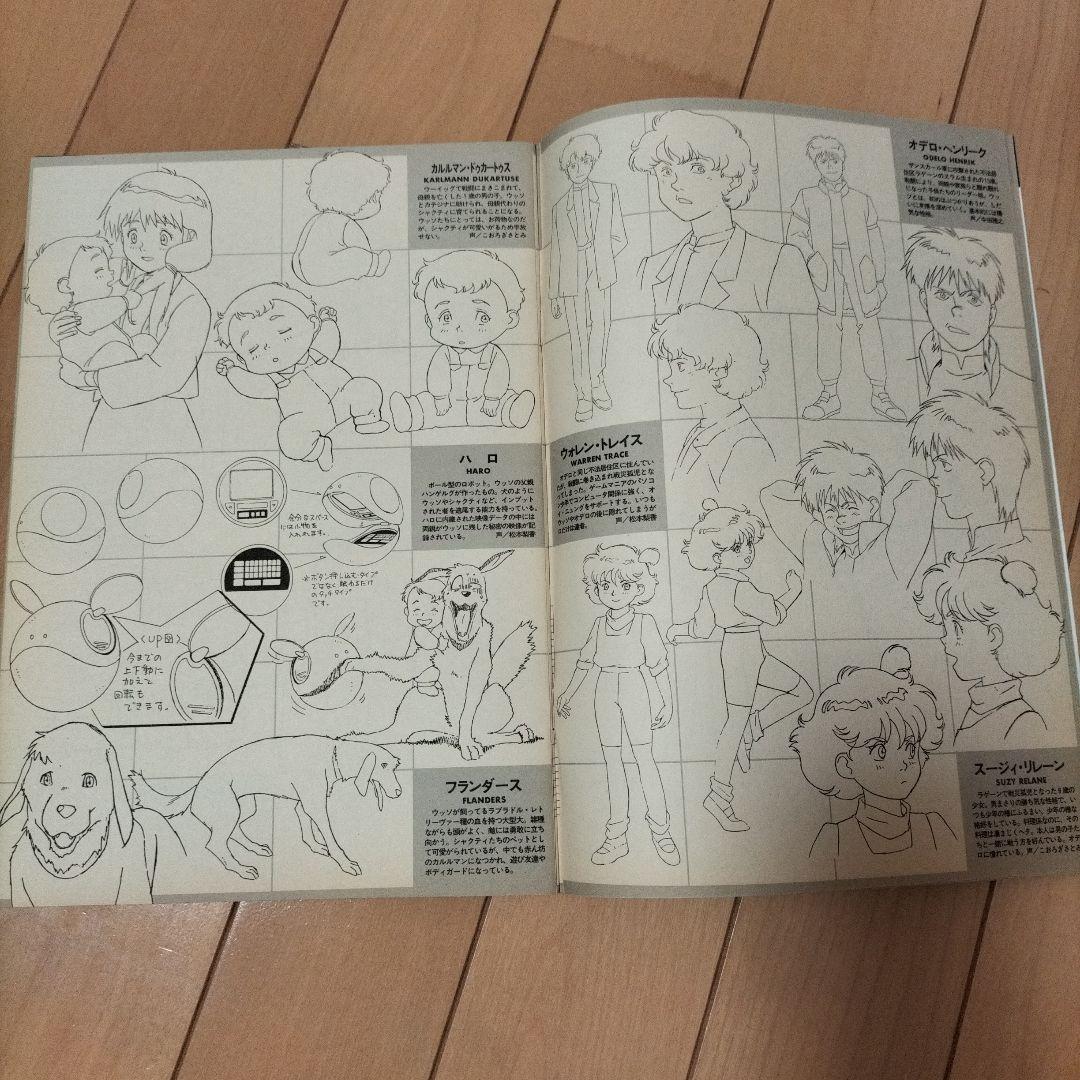 カルルマン・ドゥカートゥス
KARLMANN DUKARTUSE
ウーイッグで戦闘にまきこまれて、
母親を亡くした1歳の男の子。ウッソ
とカテジナに助けられ、母親代わりの
シャクティに育てられることになる。
ウッソたちにとっては、お荷物なのだ
が、シャクティが可愛いがるため手放
せない。 声／こおろぎさとみ
ハロ
HARO
ボール型のロボット。ウッソの父親
ハンゲルグが作ったもの。犬のように
ウッソやシャクティなど、インプット
された者を追尾する能力を持っている。
ハロに内蔵された映像データの中には
両親がウッソに残した秘密の映像が記
録されている。 声／松本梨香
余分なスペース
には小物を
入れれます。
※ボタン押し込むタイプ
ではなく触れるだけ
のタッチタイプ
です。
〈UP図〉
今までの
上下動に
加えて
回転も
できます。
フランダース
FLANDERS
ウッソが飼ってるラブラドル・レト
リーヴァー種の血を持つ大型犬。雑種
ながらも頭がよく、敵には勇敢に立ち
向かう。シャクティたちのペットとし
て可愛がられているが、中でも赤ん坊
のカルルマンになつかれ、遊び友達や
ボディガードになっている。
オデロ・ヘンリーク
ODELO HENRIK
サンスカール軍に攻撃された不法居
住区ラゲーンのスラム生まれの13歳。
になった子供たちのリーダー格。ウッ
ソとは、初めはぶつかりあうが、しだ
いに友情を深めていく。基本的には陽
気な性格。
ウォレン・トレイス
WARREN TRACE
オデロと同じ不法居住区に住んでい
たが、戦闘に巻き込まれ戦災孤児とな
ってしまった。ゲームマニアのパソコ
ン少年でコンピュータ関係に強く、オ
イ・ニュングをサポートする。いつも
ウッソやオデロの後に隠れてしまうが
口だけは達者。 声／松本梨香
スージィ・リレーン
SUZY RELANE
ラゲーンで戦災孤児となった9歳の
少女。男まさりの勝ち気な性格で、い
つも少年の様にふるまい、少年の様な
格好をしている。料理係なのに、その
料理は凄まじくヘタ。本人は男の子た
ちと一緒に戦う方を好んでいる。オデ
ロに憧れている。声／こおろぎさとみ